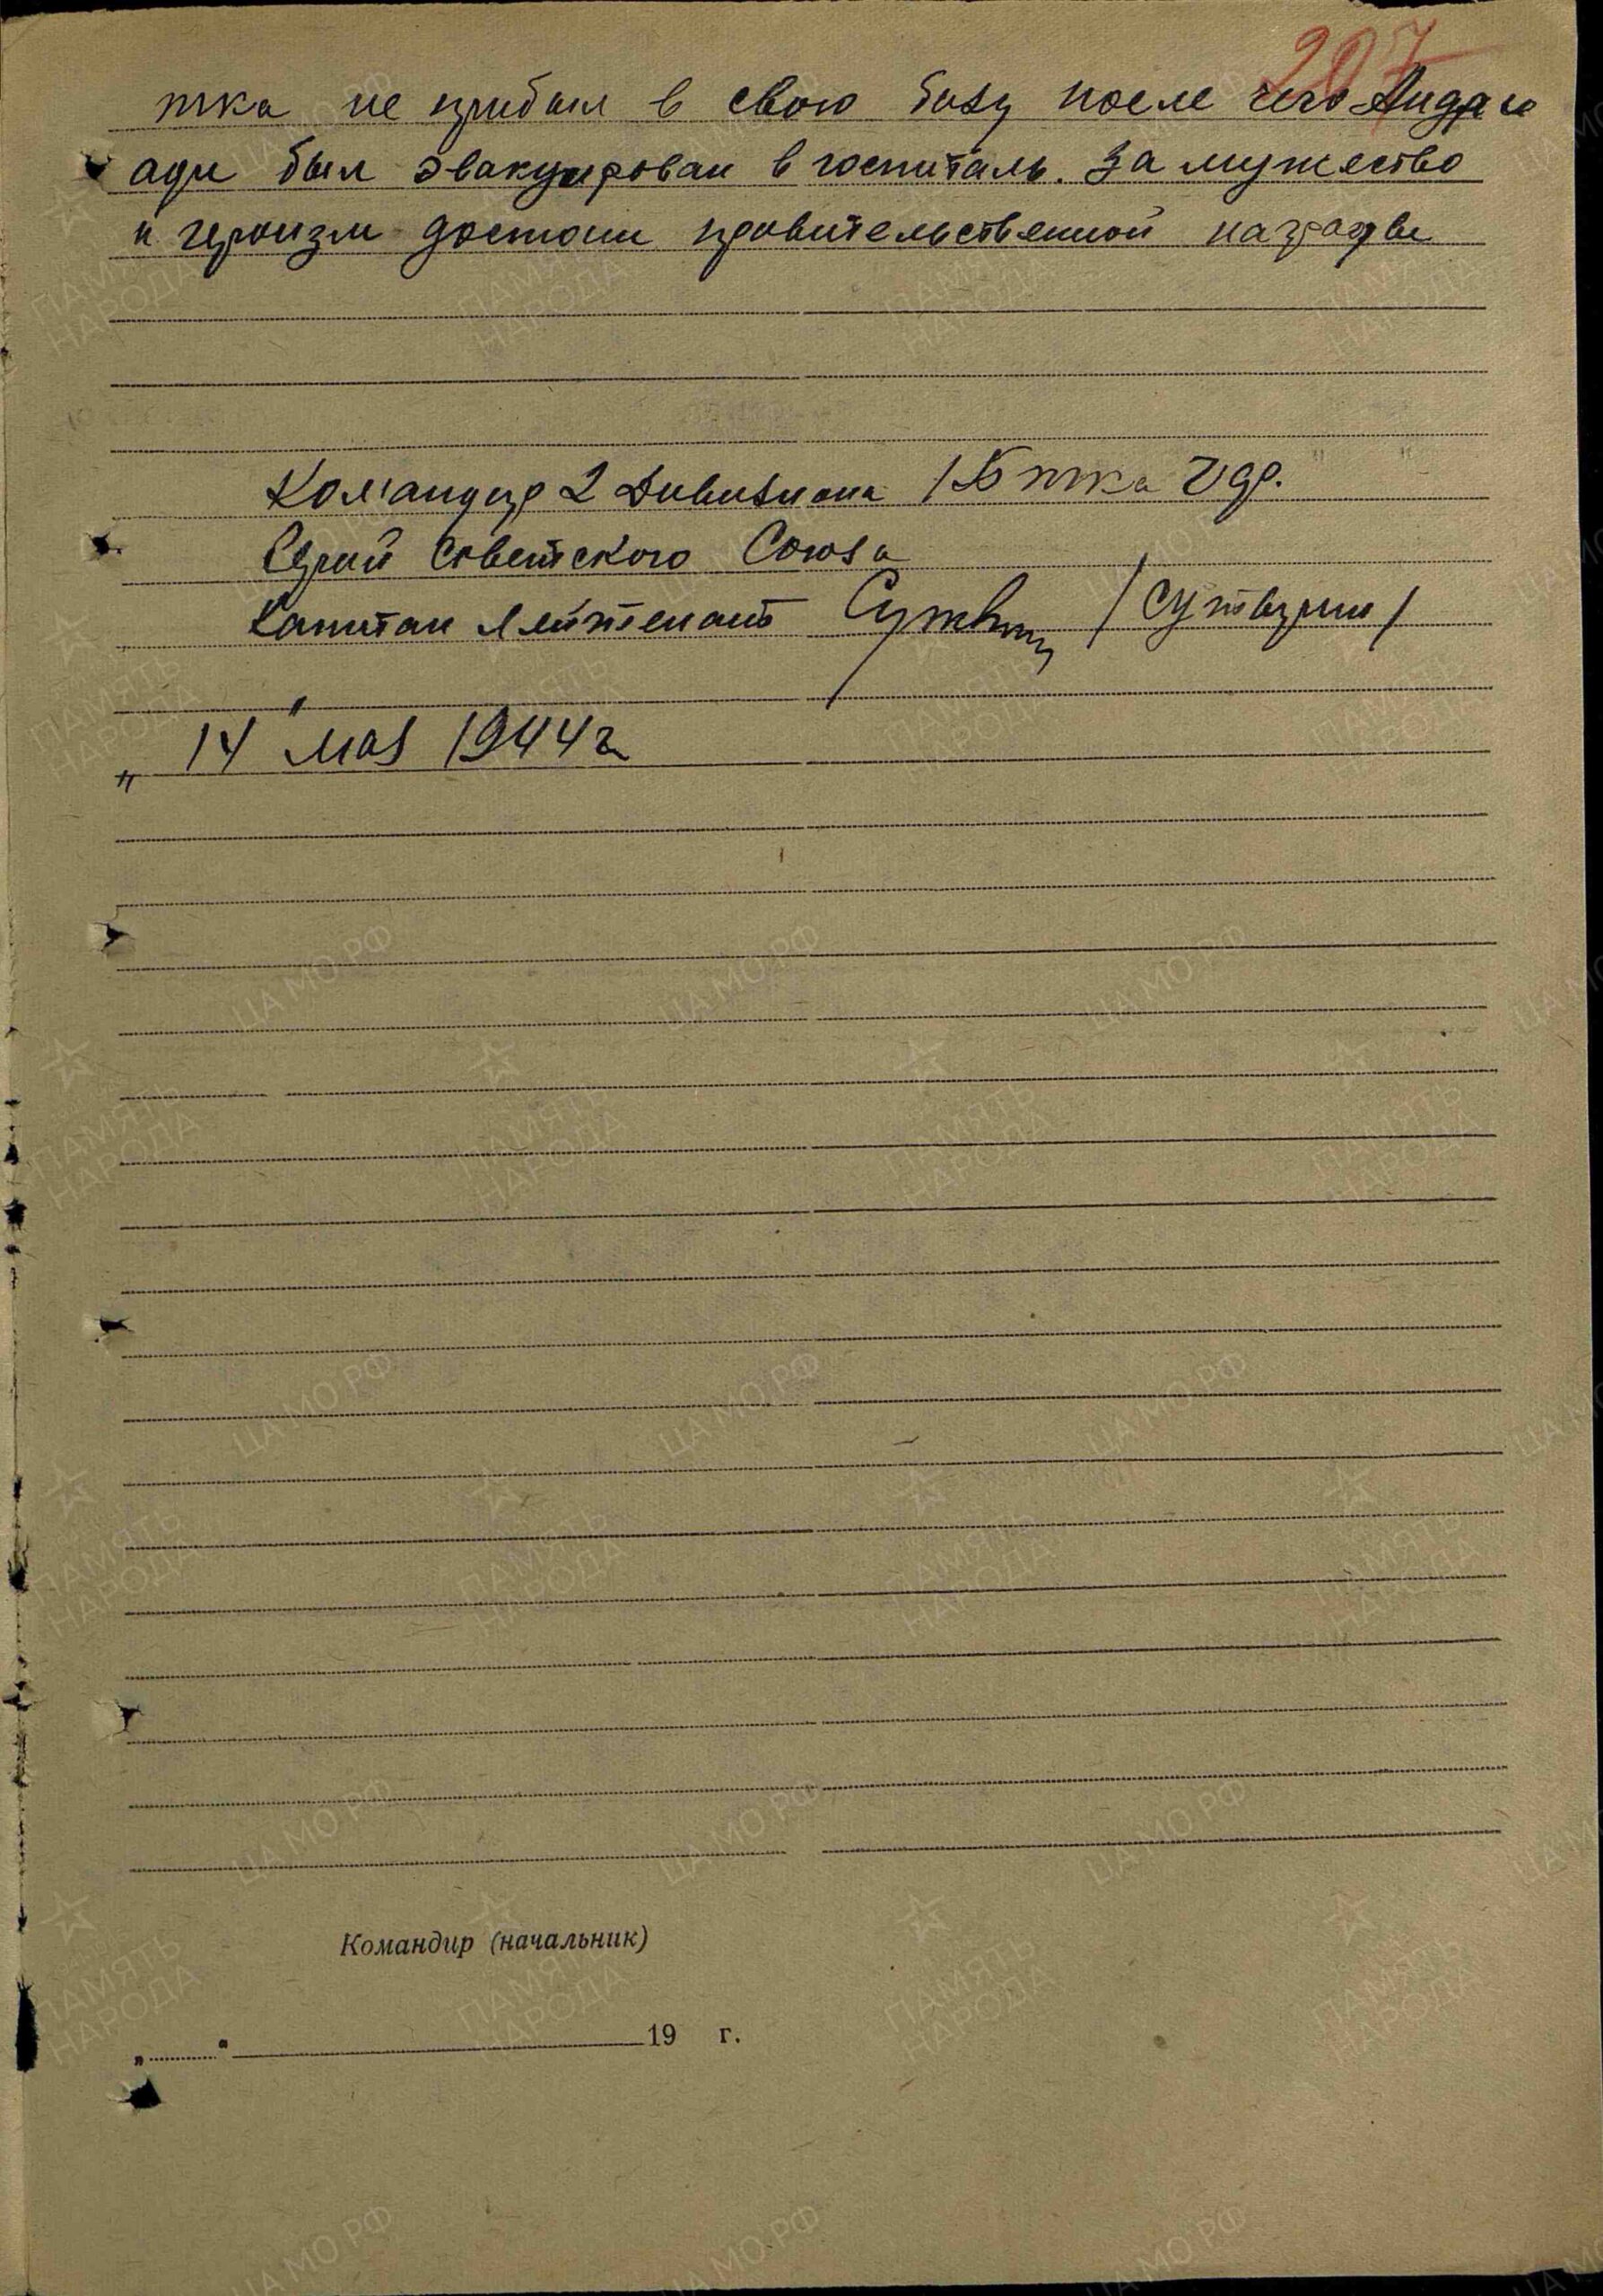 207
тка не прибыл в свою базу после чего Андри
ади был эвакуирован в госпиталь. За мужество
и героизм достоин правительственной награды
Командир 2 Дивизиона 1 Б тка ЧФ.
Герой Советского Союза
Капитан Лейтенант /Сутырин/
„ 14 " мая 1944 г
Командир (начальник)
„ " 19 г.